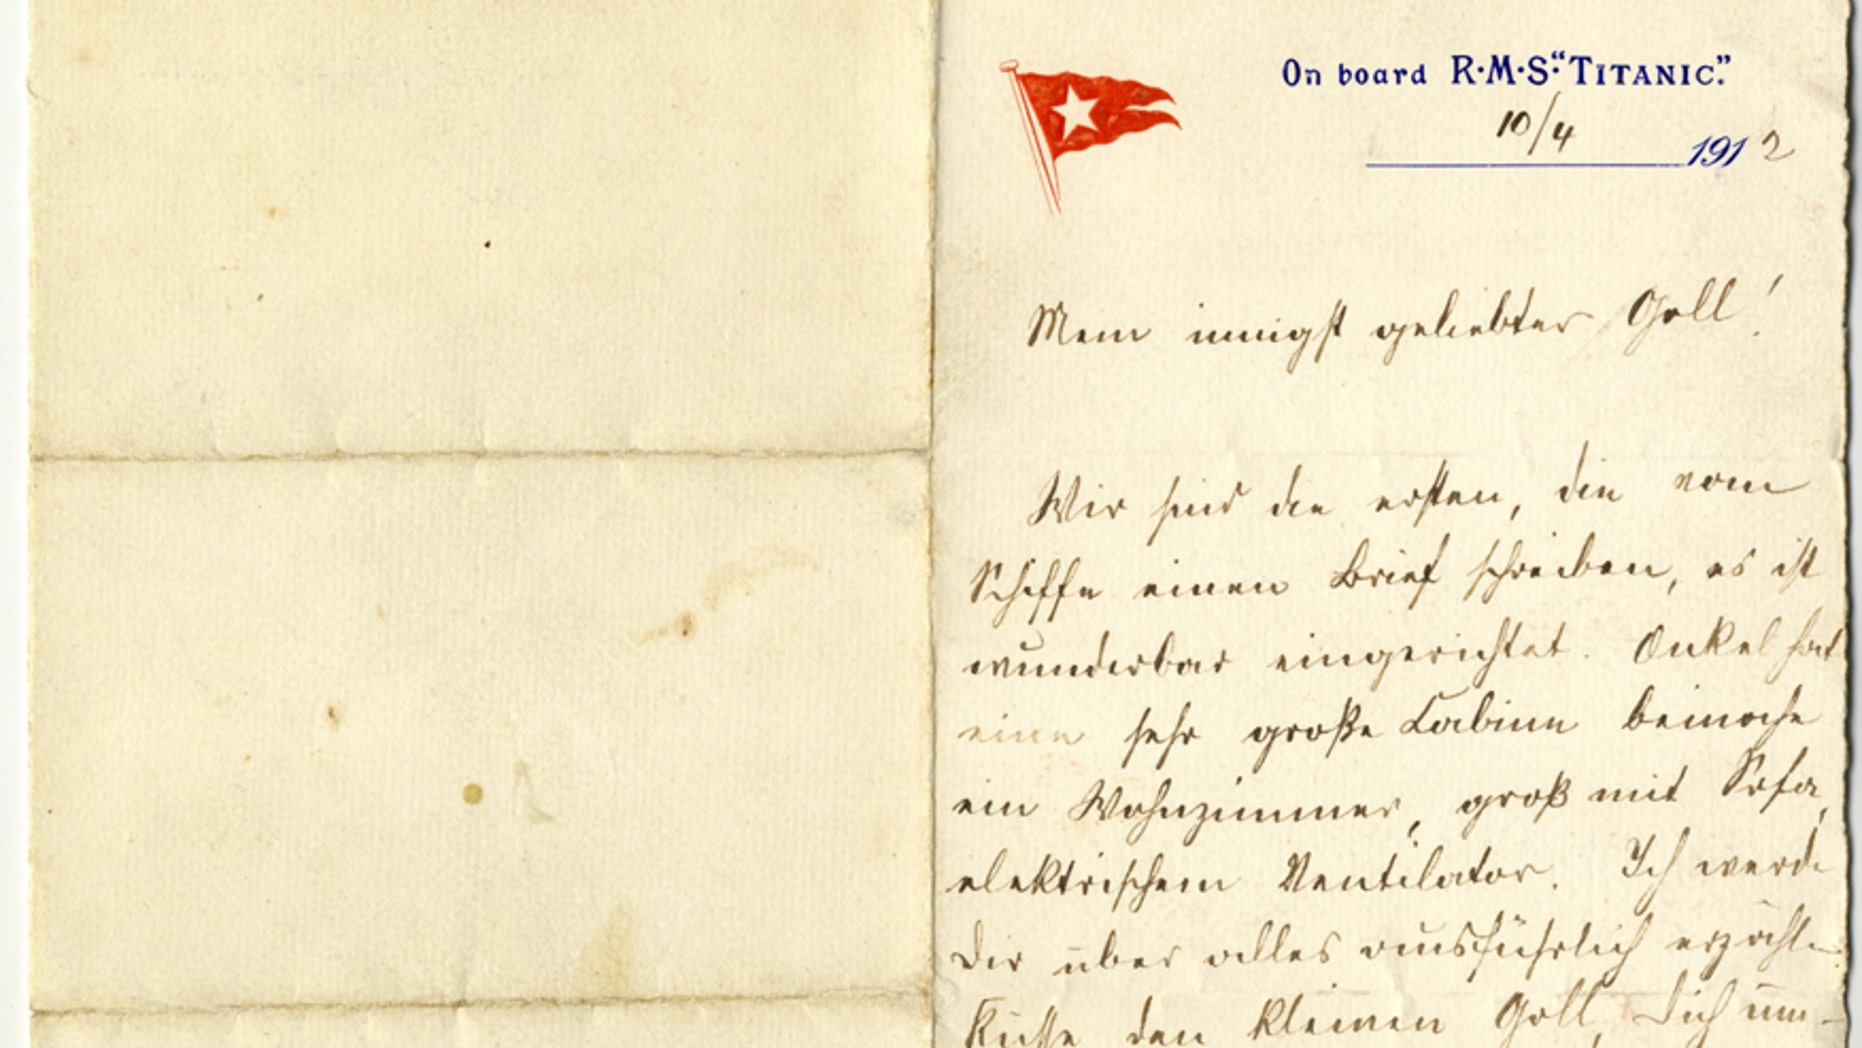 On board R·M·S·"TITANIC".
10/4 1912
Mein innigst geliebter Goll!
Wir sind die ersten, die vom
Schiffe einen Brief schreiben, es ist
wunderbar eingerichtet. Onkel hat
eine sehr große Cabine beinahe
ein Wohnzimmer, groß mit Sofa,
elektrischem Ventilator. Ich werde
Dir über alles ausführlich erzählen.
Küsse den kleinen Goll, Dich um-